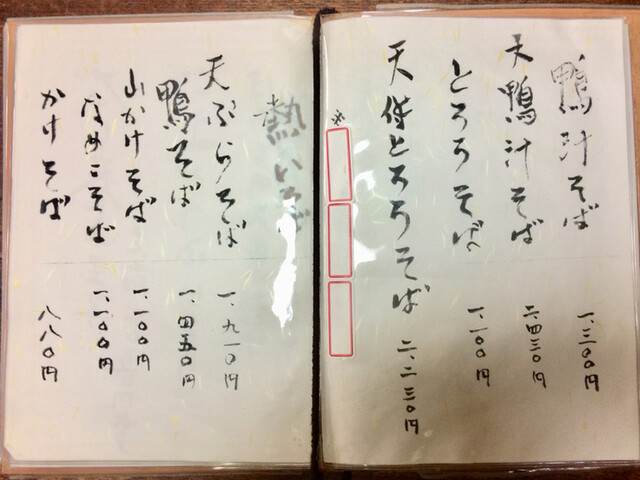 鴨汁そば 一、三〇〇円
天鴨汁そば 二、四三〇円
とろろそば 一、一〇〇円
天付とろろそば 二、二三〇円
熱いそば
天ぷらそば 一、九一〇円
鴨そば 一、四五〇円
山かけそば 一、一〇〇円
なめこそば 一、一〇〇円
かけそば 八八〇円